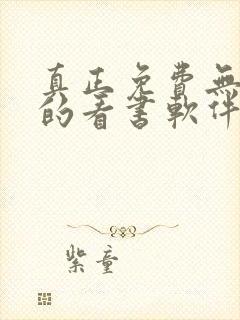 真正免費無
的看書軟件
紫童